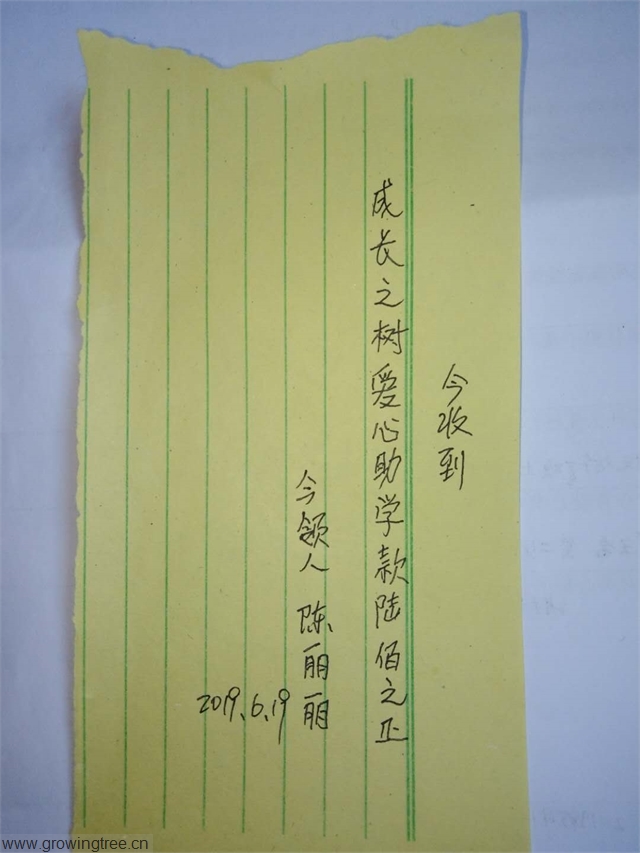 今收到
成长之树爱心助学款陆佰之正
今领人 陈丽丽
2019.6.19
www.growingtree.cn